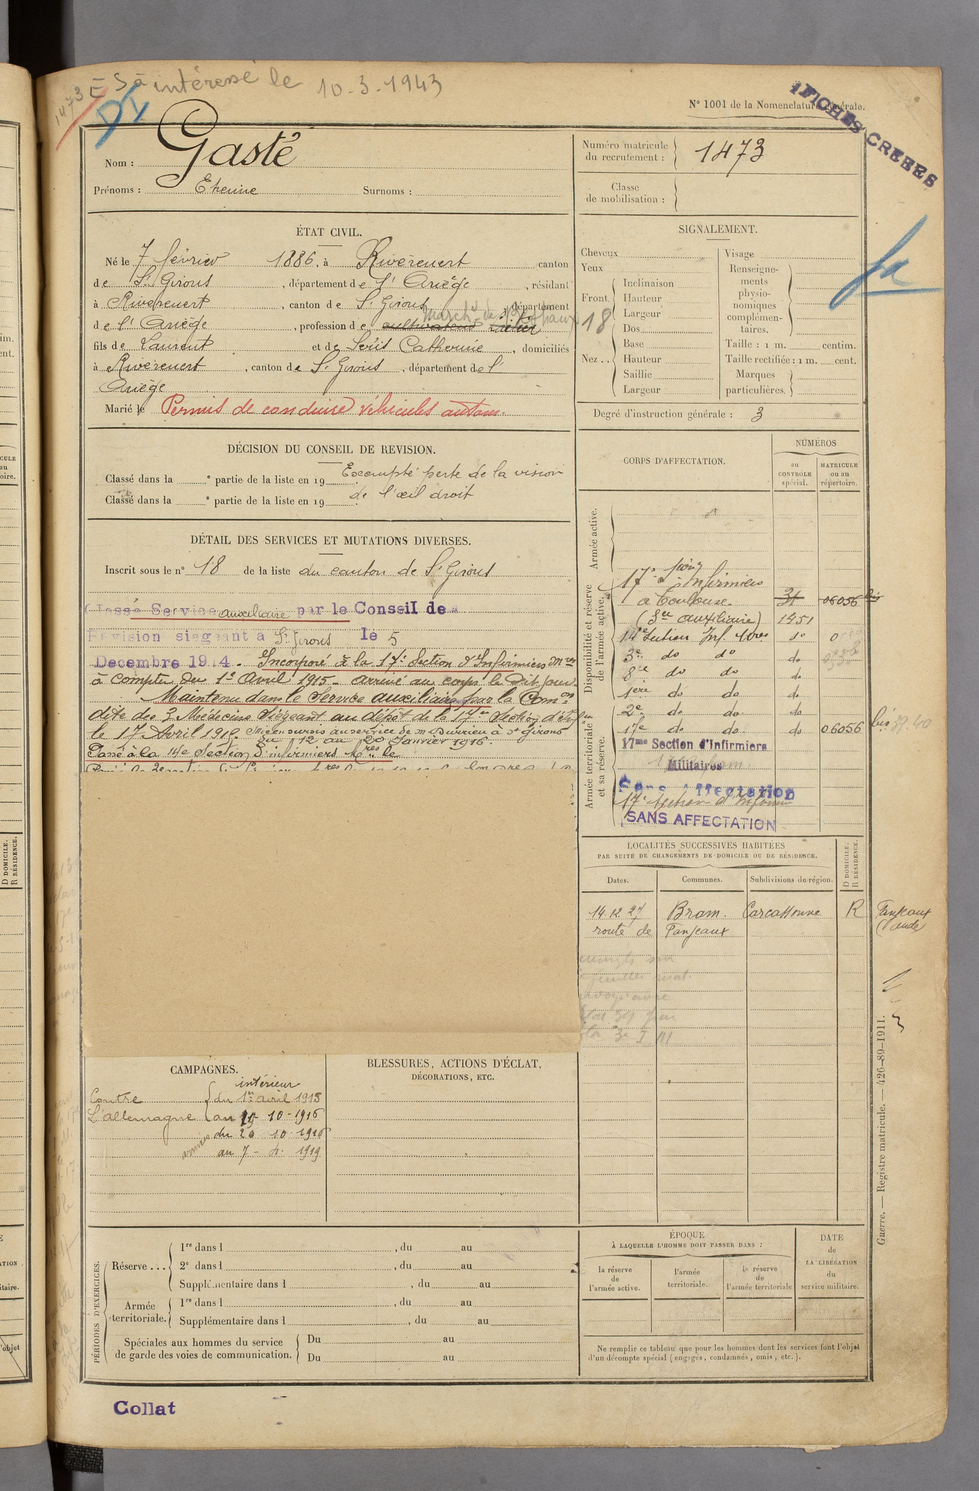 1473
E S à intéressé le 10-3-1943
N° 1001 de la Nomenclature générale.
FICHES CREEES
Nom : Gasté
Prénoms : Etienne Surnoms :
Numéro matricule du recrutement : 1473
Classe de mobilisation :
ÉTAT CIVIL.
Né le 7 février 1886, à Rivèrenert canton
de St Girons, département de l'Ariège, résidant
à Rivèrenert, canton de St Girons, département
de l'Ariège, profession de cultivateur
fils de Laurent et de Seris Catherine, domiciliés
à Rivèrenert, canton de St Girons, département de l'
Ariège
Marié le Permis de conduire véhicules autom.
SIGNALEMENT.
Cheveux
Yeux
Front
Inclinaison
Hauteur
Largeur
Dos
Nez
Base
Hauteur
Saillie
Largeur
Visage
Renseignements physionomiques complémentaires.
Taille : 1 m. centim.
Taille rectifiée : 1 m. cent.
Marques particulières.
Degré d'instruction générale : 3
DÉCISION DU CONSEIL DE REVISION.
Classé dans la e partie de la liste en 19 Exempté perte de la vision
Classé dans la e partie de la liste en 19 de l'œil droit
DÉTAIL DES SERVICES ET MUTATIONS DIVERSES.
Inscrit sous le n° 18 de la liste du canton de St Girons
Classé Service auxiliaire par le Conseil de
Révision siegeant à St Girons le 5
Decembre 1914. Incorporé à la 17e Section d'Infirmiers Mres
à compter du 1er Avril 1915. arrivé au corps le dit jour.
Maintenu dans le Service auxiliaire par la Comon
dite des 3 Médecins siégeant au dépôt de la 17me Section d'Inf
le 17 Avril 1916. Mis en sursis au service de m Durrieu à St Girons
du 12 au 20 Janvier 1916.
Passé à la 14e Section d'infirmiers Mres le
CORPS D'AFFECTATION.
NUMÉROS
au CONTRÔLE spécial.
MATRICULE ou au répertoire.
Armée active.
Disponibilité et réserve de l'armée active.
17e son d'Infirmiers
à Toulouse. 31 06056 bis
(Sce auxiliaire) 1951
14e Section Inf. Mres do
3e do do do
8e do do do
1ère do do do
2e do do do
17e do do do 06056 bis
Armée territoriale et sa réserve.
17me Section d'Infirmiers
Militaires
Sans Affectation
17e Section d'Infirm
SANS AFFECTATION
LOCALITÉS SUCCESSIVES HABITÉES
PAR SUITE DE CHANGEMENTS DE DOMICILE OU DE RÉSIDENCE.
D DOMICILE. R RÉSIDENCE.
Dates. Communes. Subdivisions de région.
14.12.27 Bram. Carcassonne R Fanjeaux (Aude)
route de Fanjeaux
CAMPAGNES.
intérieur
Contre du 1er avril 1915
L'allemagne au 19-10-1916
armées du 20-10-1916
au 7-4-1919
BLESSURES, ACTIONS D'ÉCLAT,
DÉCORATIONS, ETC.
Guerre. — Registre matricule. — 426-89-1911.
PÉRIODES D'EXERCICES.
Réserve ... 1re dans l , du au
2e dans l , du au
Supplémentaire dans l , du au
Armée territoriale. 1re dans l , du au
Supplémentaire dans l , du au
Spéciales aux hommes du service de garde des voies de communication. Du au
Du au
ÉPOQUE
À LAQUELLE L'HOMME DOIT PASSER DANS :
la réserve de l'armée active.
l'armée territoriale.
la réserve de l'armée territoriale
DATE de LA LIBÉRATION du service militaire.
Ne remplir ce tableau que pour les hommes dont les services font l'objet
d'un décompte spécial (engagés, condamnés, omis, etc.).
Collat